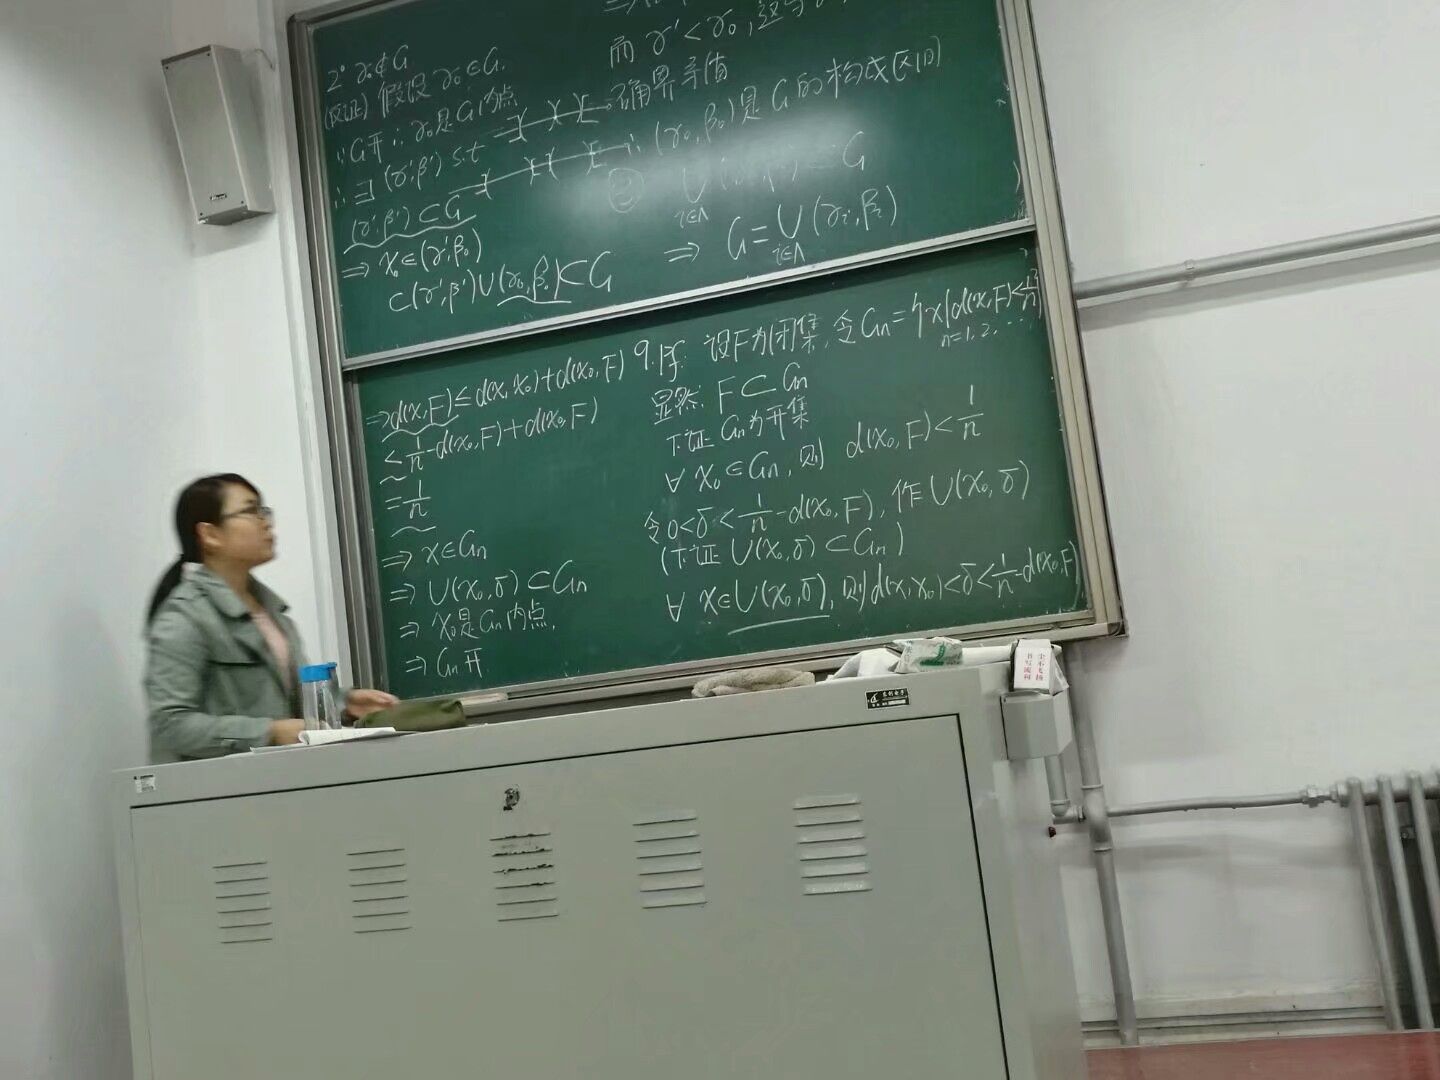 2° γ₀∉G
(反证) 假设 γ₀∈G.
∵G开∴γ₀是G内点
∴∃(γ',β') s.t
(γ',β')⊂G
⇒ x₀∈(γ',β₀)
⊂(γ',β')∪(γ₀,β₀)⊂G
而 γ'<γ₀, 这与
确界矛盾
∴(γ₀,β₀)是G的构成区间
②
⇒ G=∪(γᵢ,βᵢ)
i∈Λ
⇒d(x,F)≤d(x,x₀)+d(x₀,F)
<1/n-d(x₀,F)+d(x₀,F)
=1/n
⇒ x∈Gn
⇒ U(x₀,δ)⊂Gn
⇒ x₀是Gn内点.
⇒ Gn开
9.证: 设F为闭集, 令Gn={x|d(x,F)<1/n}
n=1,2,…
显然 F⊂Gn
下证 Gn为开集
∀ x₀∈Gn, 则 d(x₀,F)<1/n
令0<δ<1/n-d(x₀,F), 作U(x₀,δ)
(下证 U(x₀,δ)⊂Gn)
∀ x∈U(x₀,δ), 则d(x,x₀)<δ<1/n-d(x₀,F)